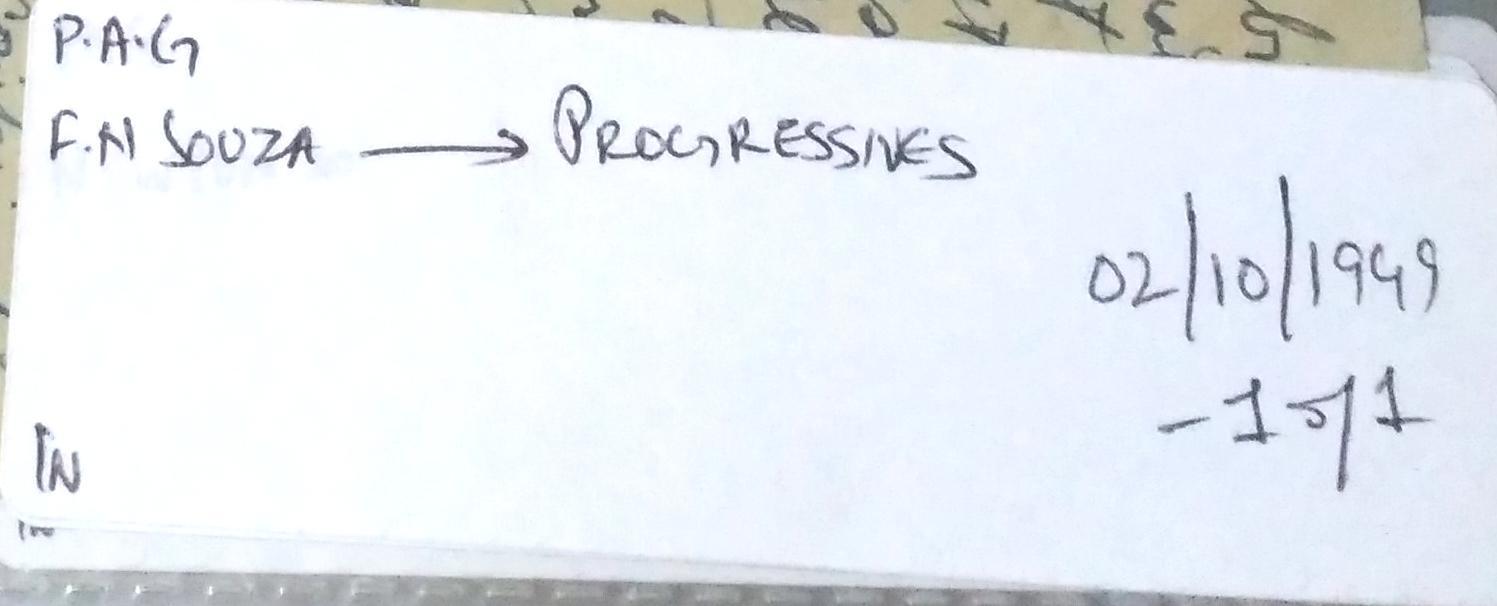 P.A.G
F.N SOUZA → PROGRESSIVES
02/10/1949
- 1 of 1
IN